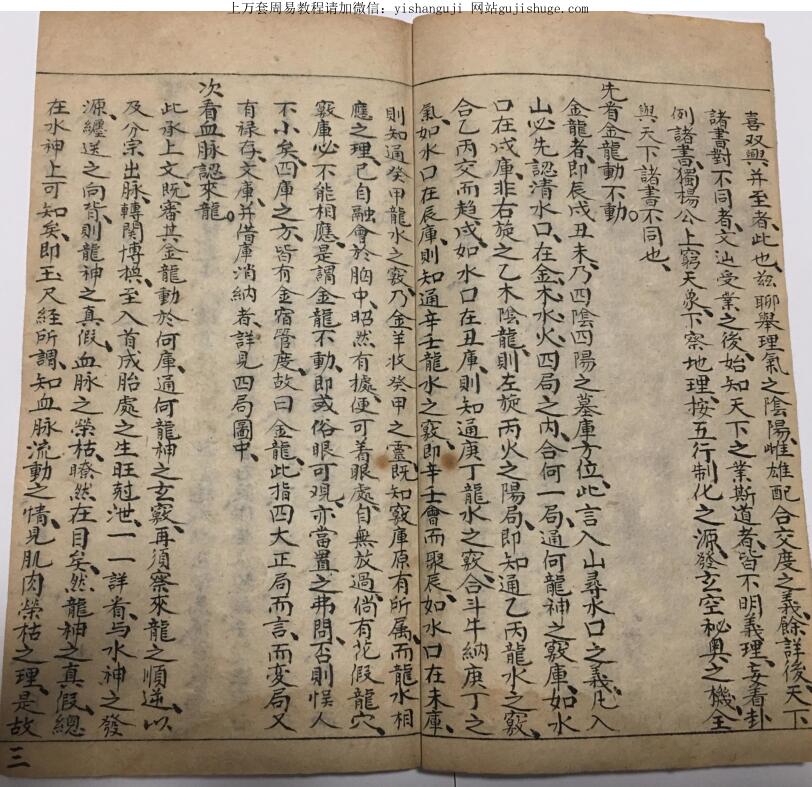 上万套周易教程请加微信：yishanguji 网站gujishuge.com
喜双興、并至者、此也、茲聊舉理氣之陰陽、雌雄配合交度之義、餘詳後、天下
諸書對不同者、文汕受業之後、始知天下之業斯道者、皆不明義理、妄看卦
例諸書、獨楊公上窮天象、下察地理、按五行制化之源、發玄空秘奧之機、全
與天下諸書不同也、
先看金龍動不動。
金龍者、即辰戌丑未、乃四陰四陽之墓庫方位、此言入山尋水口之義、凡入
山必先認清水口、在金木水火四局之內、合何一局、通何龍神之竅庫、如水
口在戌庫、非右旋之乙木陰龍、則左旋丙火之陽局、即知通乙丙龍水之竅、
合乙丙交而趋戌、如水口在丑庫、則知通庚丁龍水之竅、合斗牛納庚丁之
氣、如水口在辰庫、則知通辛壬龍水之竅、即辛壬會而聚辰、如水口在未庫、
則知通癸甲龍水之竅、乃金羊收癸甲之靈、既知竅庫原有所属、而龍水相
應之理、已自融會於胸中、昭然有據、便可着眼處、自無放過、倘有花假龍穴、
竅庫必不能相應、是謂金龍不動、即或俗眼可观、亦當置之弗問、否則悮人
不小矣、四庫之方、皆有金宿管度、故曰金龍、此指四大正局而言、而变局又
有禄存、文庫、并借庫消納者、詳見四局圖中、
次看血脉認來龍。
此承上文、既審其金龍動於何庫、通何龍神之玄竅、再須察來龍之順逆、以
及分宗出脉、轉関博換、至入首成胎處之生旺尅泄、一一詳看、与水神之發
源、纏送之向背、則龍神之真假、血脉之榮枯、瞭然在目矣、然龍神之真假、總
在水神上可知矣、即玉尺經所謂、知血脉流動之情、見肌肉榮枯之理、是故
三